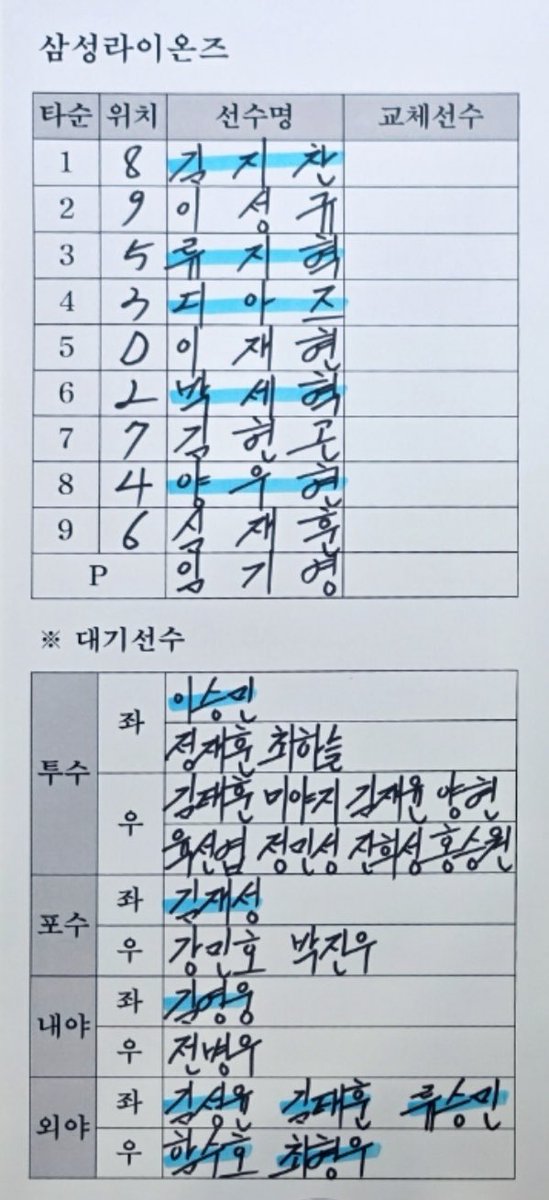 삼성라이온즈
타순 위치 선수명 교체선수
1 8 김지찬
2 9 이성규
3 5 류지혁
4 3 디아즈
5 D 이재현
6 2 박세혁
7 7 김헌곤
8 4 양우현
9 6 심재훈
P 임기영
※ 대기선수
투수 좌 이승민
정재훈 최하늘
우 김태훈 미야지 김재윤 양현
육선엽 정민성 장희성 홍승원
포수 좌 김재성
우 강민호 박진우
내야 좌 김영웅
우 전병우
외야 좌 김성윤 김태훈 류승민
우 함수호 최형우